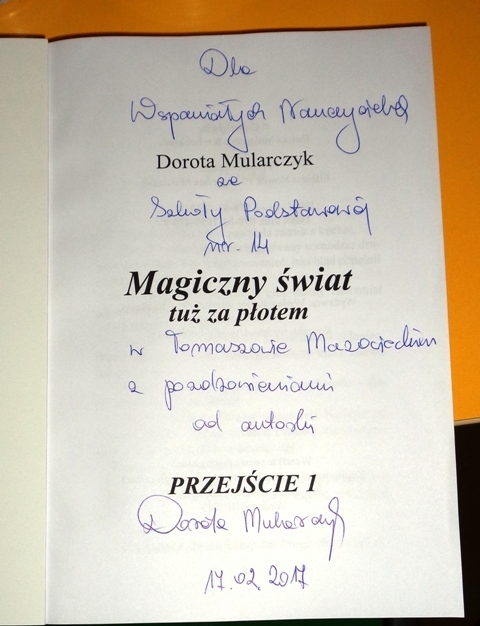 Dla
Wspaniałych Nauczycieli
Dorota Mularczyk
ze
Szkoły Podstawowej
nr. 14
Magiczny świat
tuż za płotem
w Tomaszowie Mazowieckim
z pozdrowieniami
od autorki
PRZEJŚCIE 1
Dorota Mularczyk
17.02.2017